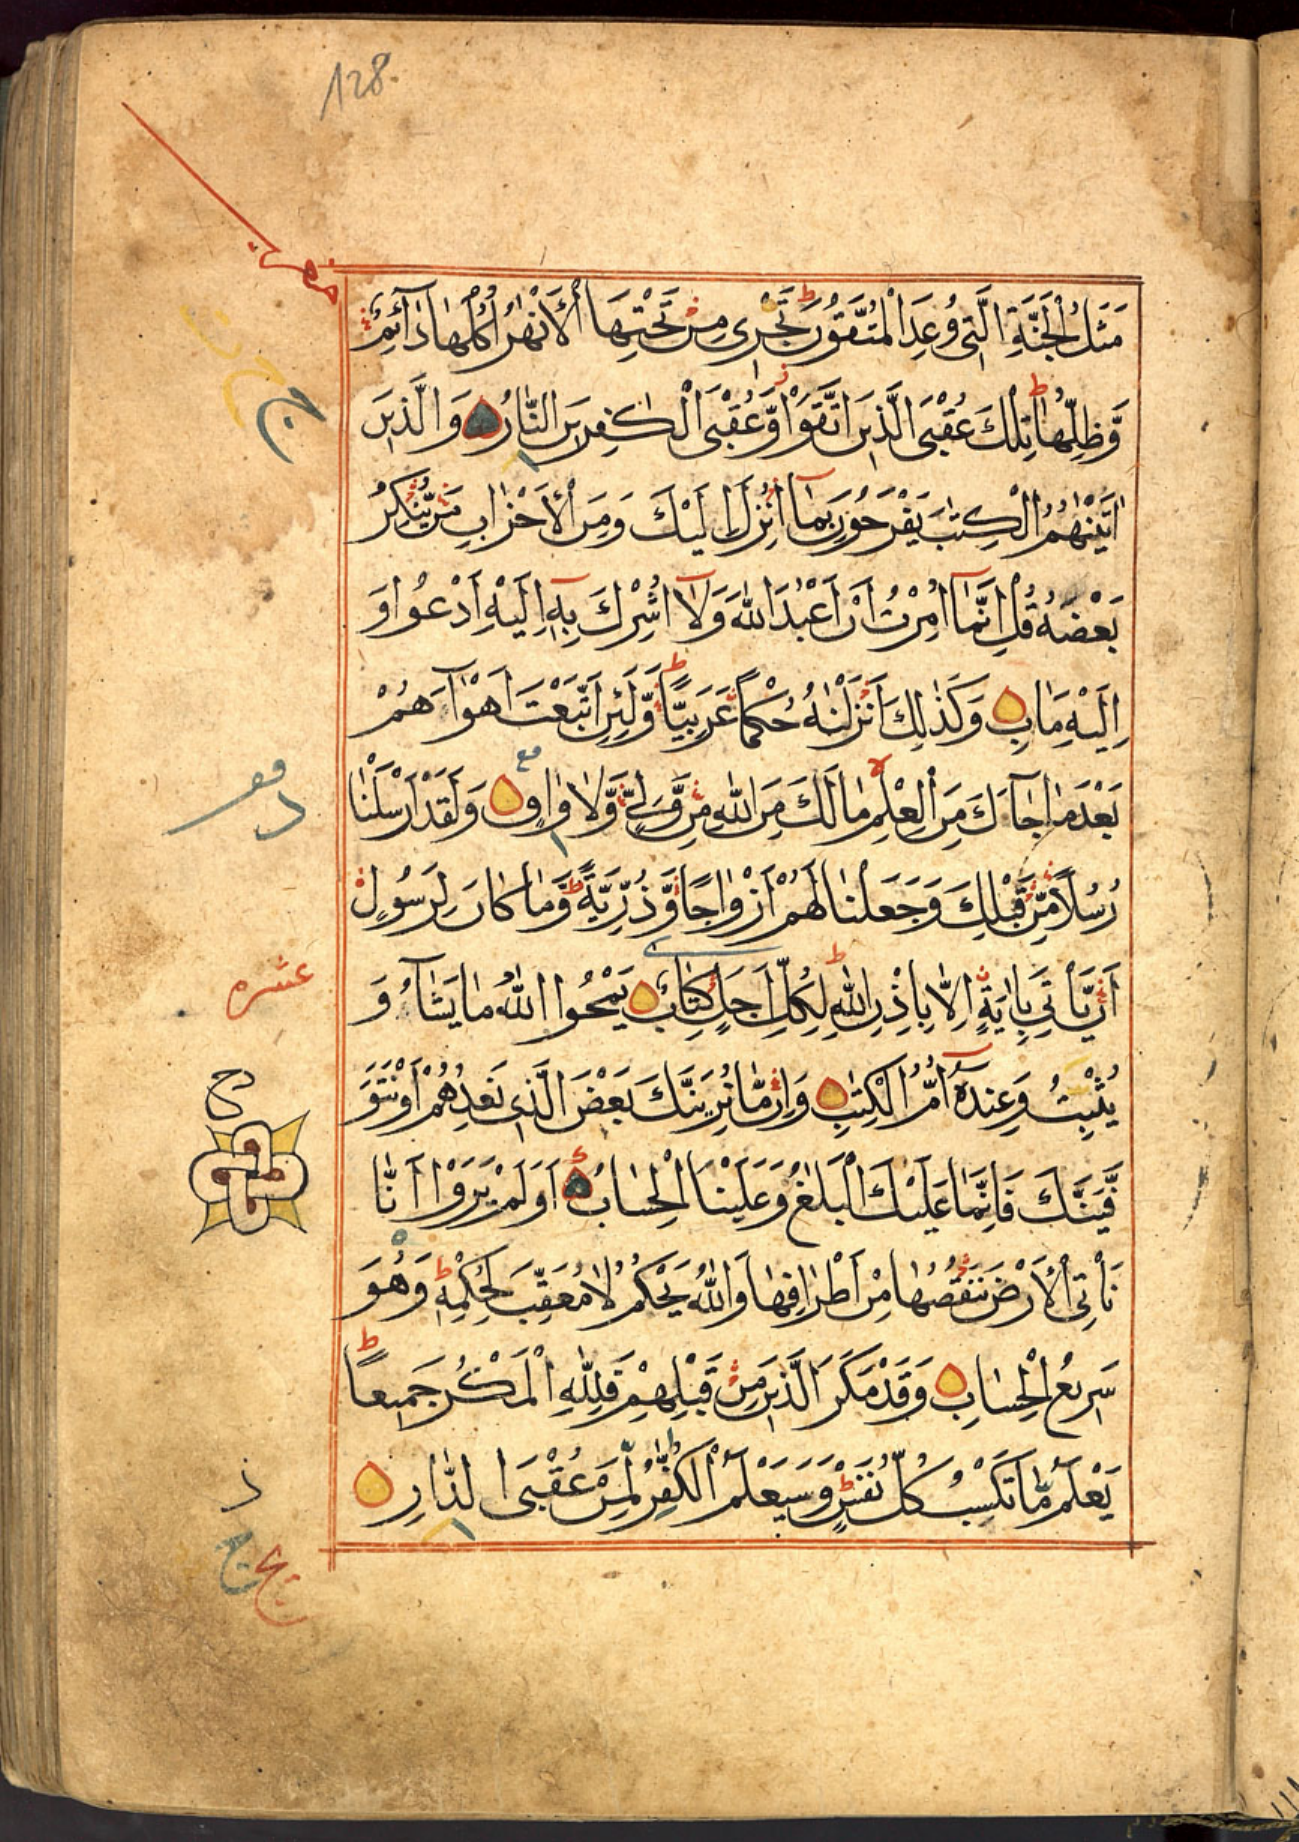 128
مَثَلُ الْجَنَّةِ الَّتِى وُعِدَ الْمُتَّقُونَ تَجْرِى مِنْ تَحْتِهَا الْاَنْهٰرُ اُكُلُهَا دَآئِمٌ
وَّظِلُّهَا تِلْكَ عُقْبَى الَّذِينَ اتَّقَوْا وَّعُقْبَى الْكٰفِرِينَ النَّارُ وَالَّذِينَ
اٰتَيْنٰهُمُ الْكِتٰبَ يَفْرَحُونَ بِمَآ اُنْزِلَ اِلَيْكَ وَمِنَ الْاَحْزَابِ مَنْ يُّنْكِرُ
بَعْضَهُ قُلْ اِنَّمَآ اُمِرْتُ اَنْ اَعْبُدَ اللّٰهَ وَلَآ اُشْرِكَ بِهٖ اِلَيْهِ اَدْعُوا وَ
اِلَيْهِ مَاٰبِ وَكَذٰلِكَ اَنْزَلْنٰهُ حُكْمًا عَرَبِيًّا وَّلَئِنِ اتَّبَعْتَ اَهْوَآءَهُمْ
بَعْدَ مَا جَآءَكَ مِنَ الْعِلْمِ مَا لَكَ مِنَ اللّٰهِ مِنْ وَّلِىٍّ وَّلَا وَاقٍ وَلَقَدْ اَرْسَلْنَا
رُسُلًا مِّنْ قَبْلِكَ وَجَعَلْنَا لَهُمْ اَزْوَاجًا وَّذُرِّيَّةً وَّمَا كَانَ لِرَسُولٍ
اَنْ يَّأْتِىَ بِاٰيَةٍ اِلَّا بِاِذْنِ اللّٰهِ لِكُلِّ اَجَلٍ كِتَابٌ يَمْحُوا اللّٰهُ مَا يَشَآءُ وَ
عشره
يُثْبِتُ وَعِنْدَهٗٓ اُمُّ الْكِتٰبِ وَاِنْ مَّا نُرِيَنَّكَ بَعْضَ الَّذِى نَعِدُهُمْ اَوْ نَتَوَ
فَّيَنَّكَ فَاِنَّمَا عَلَيْكَ الْبَلٰغُ وَعَلَيْنَا الْحِسَابُ اَوَلَمْ يَرَوْا اَنَّا
نَأْتِى الْاَرْضَ نَنْقُصُهَا مِنْ اَطْرَافِهَا وَاللّٰهُ يَحْكُمُ لَا مُعَقِّبَ لِحُكْمِهٖ وَهُوَ
سَرِيعُ الْحِسَابِ وَقَدْ مَكَرَ الَّذِينَ مِنْ قَبْلِهِمْ فَلِلّٰهِ الْمَكْرُ جَمِيعًا
يَعْلَمُ مَا تَكْسِبُ كُلُّ نَفْسٍ وَسَيَعْلَمُ الْكُفّٰرُ لِمَنْ عُقْبَى الدَّارِ